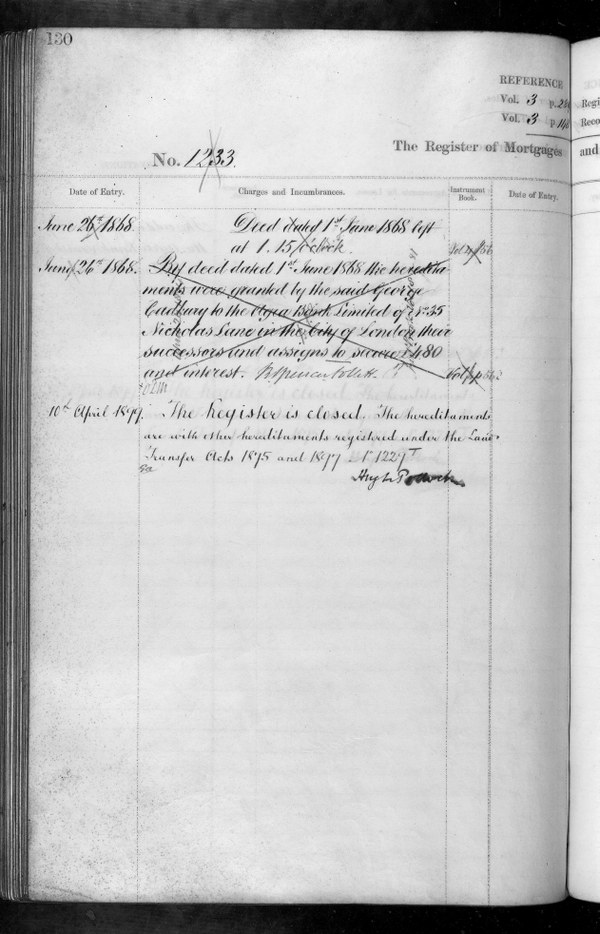 130
REFERENCE
Vol. 3 p.
Vol. 3 p
The Register of Mortgages
and
No. 1233
Date of Entry.
Charges and Incumbrances.
Instrument
Book.
Date of Entry.
June 26th 1868.
Deed dated 1st June 1868 left
at 1.15 o'clock.
June 26th 1868.
By deed dated 1st June 1868 the heredita
ments were granted by the said George
Cadbury to the Bank Limited of No 35
Nicholas Lane in the City of London their
successors and assigns to secure £480
and interest.
10th April 1899.
The Register is closed. The hereditaments
are with other hereditaments registered under the Land
Transfer Acts 1875 and 1897.
Hugh Pollock